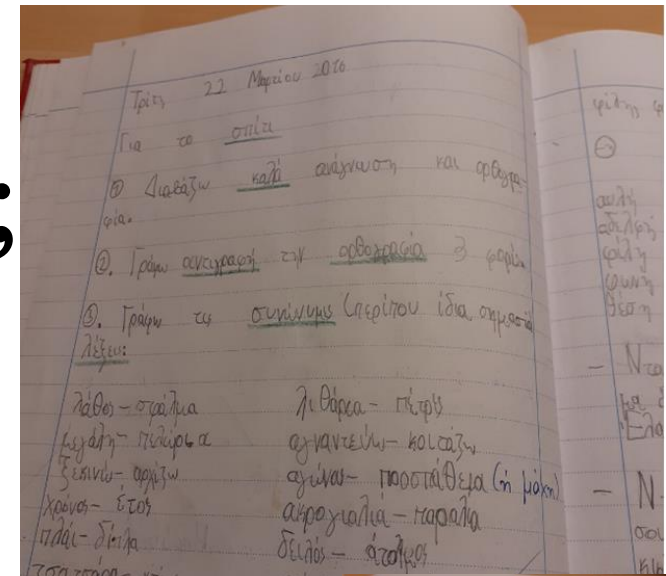 ;
Τρίτη 22 Μαρτίου
Για το σπίτι
① Διαβάζω καλά ανάγνωση και ορθογρα-
φία.
②. Γράφω αντιγραφή την ορθογραφία 3 φορές.
③. Γράφω τις συνώνυμες (περίπου ίδια σημασία
λέξεις:
λάθος – σφάλμα
μεγάλη – πελώρια
ξεκινώ – αρχίζω
χρόνος – έτος
πλάι – δίπλα
λιθάρια – πέτρες
αγναντεύω – κοιτάζω
αγώνας – προσπάθεια (ή μάχη)
ακρογιαλιά – παραλία
δειλός – άτολμος
φίλης
αυλή
αδελφή
φίλη
φωνή
θέση